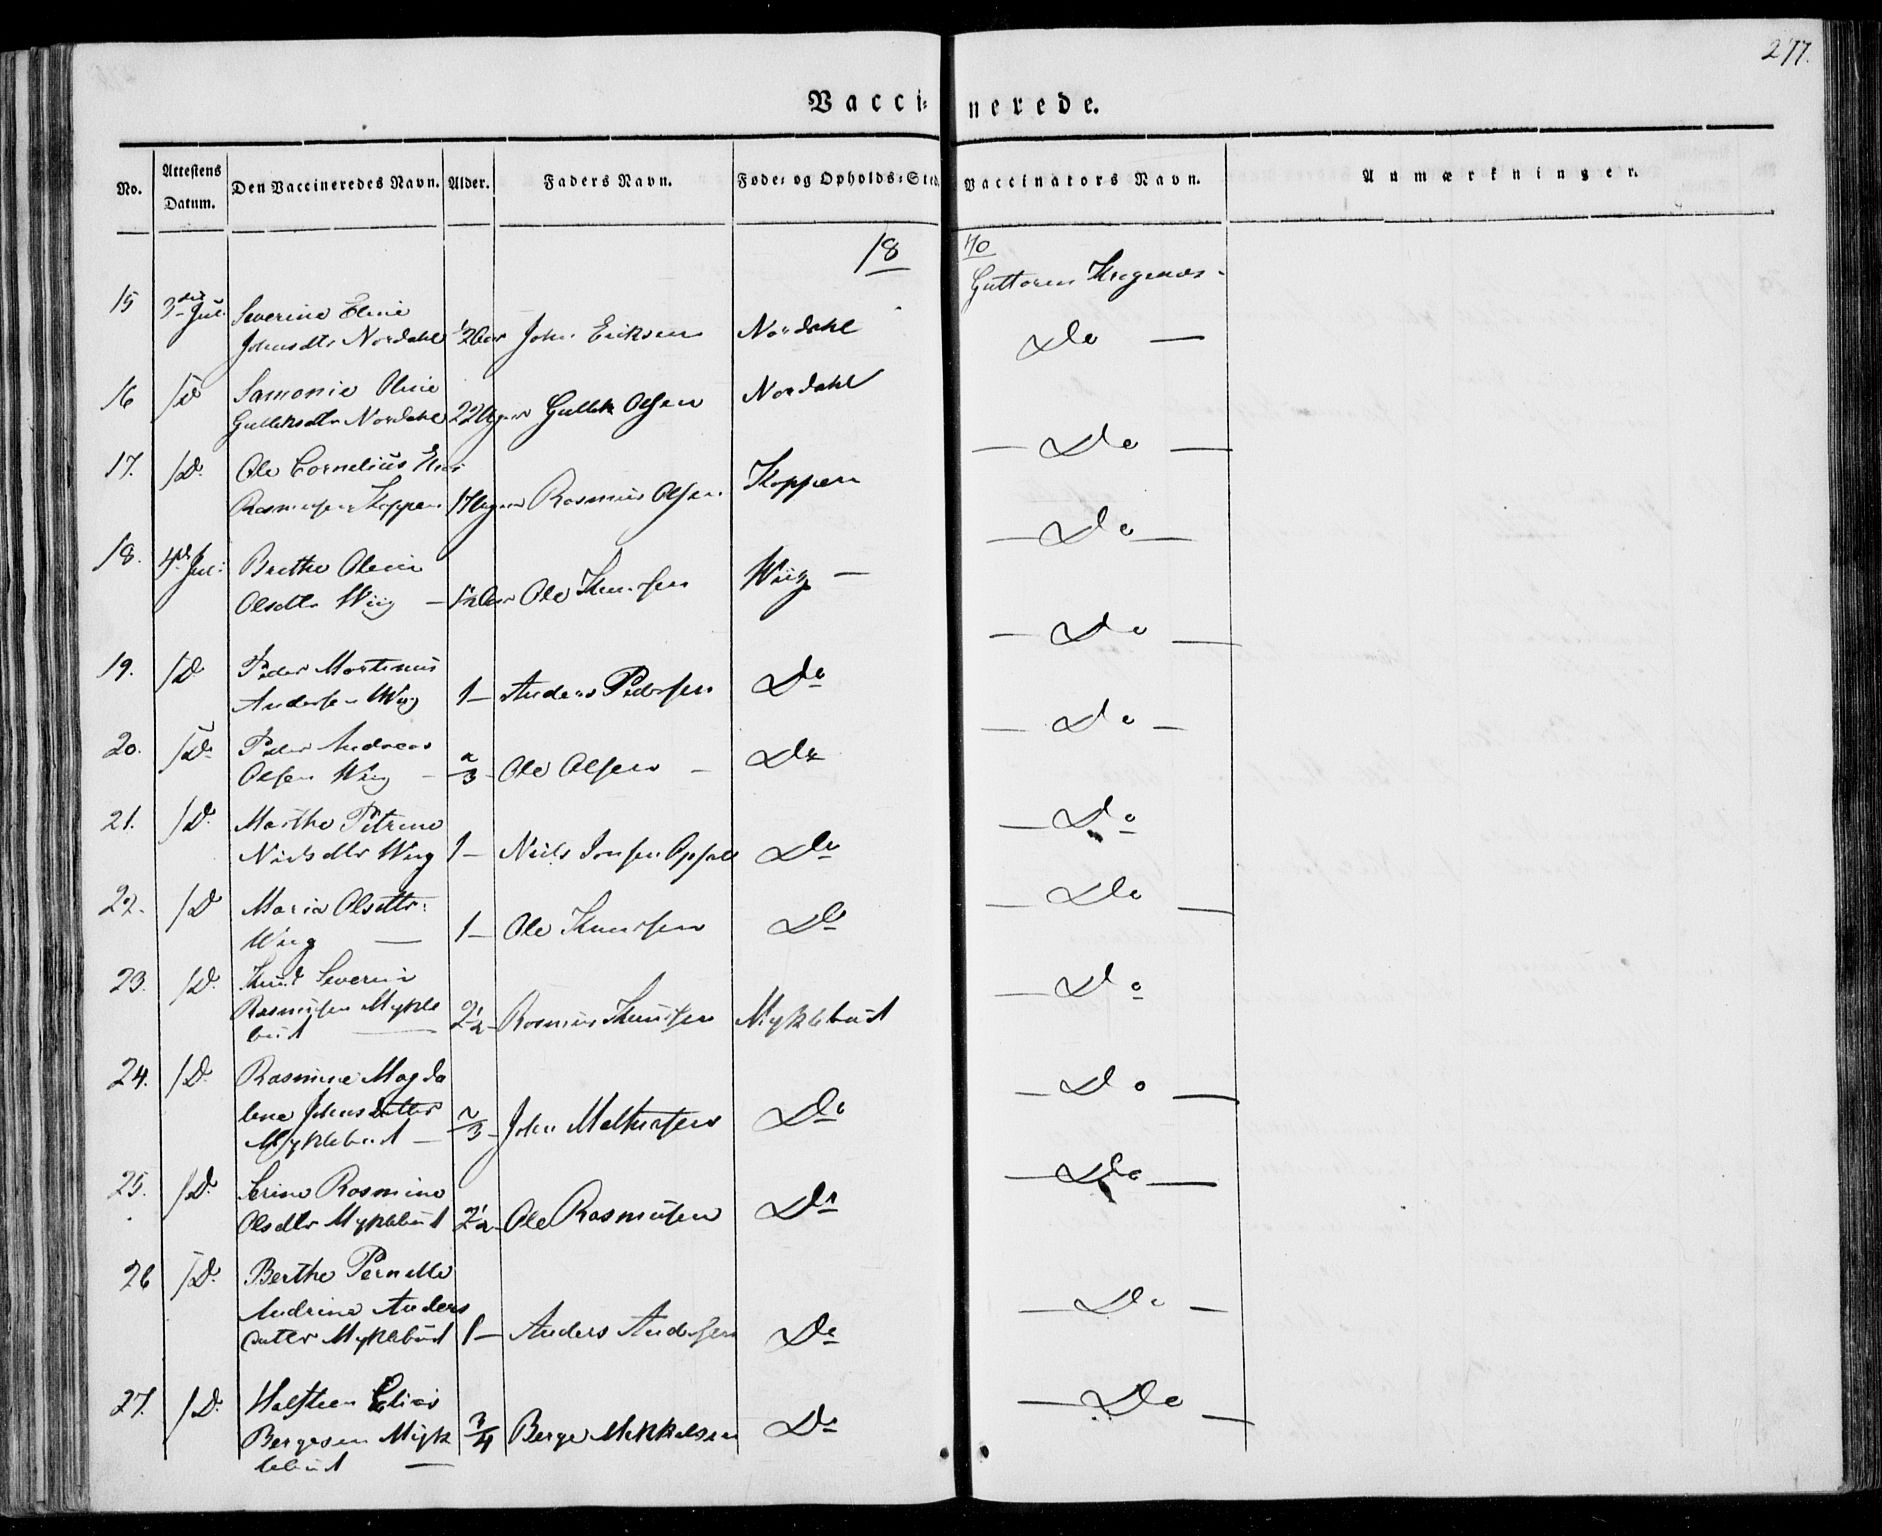 277.
Vaccinerede.
No. Attestens Datum. Den Vaccineredes Navn. Alder. Faders Navn. Føde- og Opholds-Sted. Vaccinators Navn. Anmærkninger.
18 40
Guttorm
15 3die Jul. Severine Eline
Johnsdtr Nordahl John Eriksen Nordahl Do —
16 /D Samonie Oline
Gulleksdtr Nordahl 22 Uger Gullek Olsen Nordahl — Do —
17. /D. Ole Cornelius
Rasmusen Koppen 17 Uger Rasmus Olsen Koppen — Do —
18. 4de Jul: Berthe Oline
Olsdtr Wiig — Ole Knudsen Wiig — — Do —
19. /D Peder Martinus
Andersen Wiig 1 — Anders Pedersen Do — Do —
20. /Do Peder Andreas
Olsen Wiig — 2/3 — Ole Olsen — Do — Do
21. /D. Marthe Petrine
Nielsdtr Wiig 1 — Niels Do — Do
22. /D Maria Olsdtr:
Wiig — 1 — Ole Knudsen Do — Do
23. /D. Knud Severin
Rasmusen Mykle
bust — 2½ — Rasmus Knudsen Myklebust — Do —
24. /D. Rasmine Magda
lene Johnsdatter
Myklebust — 2/3 — John Mathiasen Do — Do —
25. /D. Serine Rasmine
Olsdtr Myklebust 2½ — Ole Rasmusen Do — Do —
26 /D. Berthe Pernelle
Andrine Anders
datter Myklebust 1 — Anders Andersen Do — Do —
27. /D. Halsteen Elias
Bergesen Myk
lebust — 3/4 Berge Mikkelsen Do